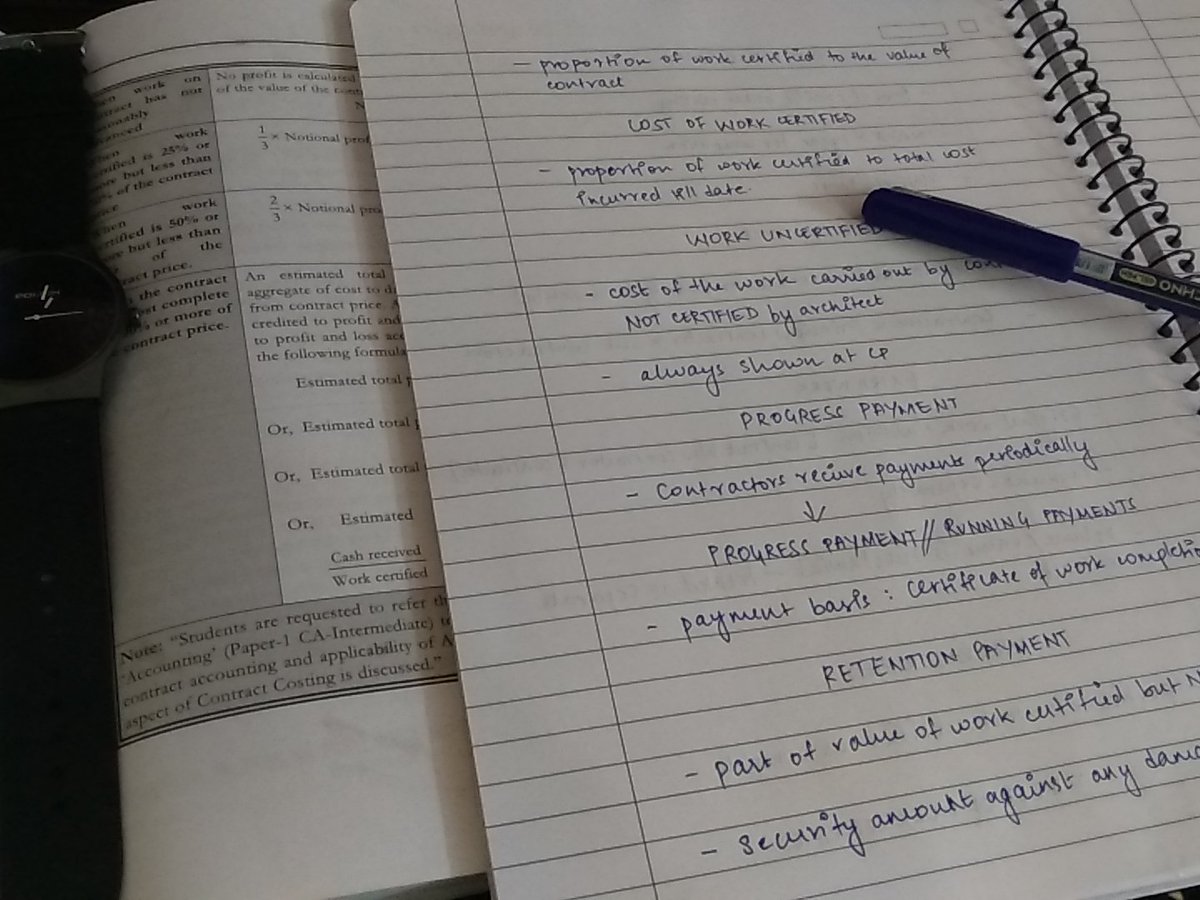 work on
No profit is calculated
of the value of the
work
1/3 × Notional
is 25% or
but less than
of the contract
work
2/3 × Notional
is 50% or
but less than
of the
price.
the contract
complete
or more of
contract price.
An estimated total
aggregate of cost to
from contract price.
credited to profit and
to profit and loss
the following formula
Estimated total
Or, Estimated total
Or, Estimated total
Or, Estimated
Cash received
Work certified
Note: "Students are requested to refer
'Accounting' (Paper-1 CA-Intermediate)
contract accounting and applicability of
aspect of Contract Costing is discussed."
- proportion of work certified to the value of
contract
COST OF WORK CERTIFIED
- proportion of work certified to total cost
incurred till date.
WORK UNCERTIFIED
- cost of the work carried out by
NOT CERTIFIED by architect
- always shown at CP
PROGRESS PAYMENT
- Contractors recieve payments periodically
↓
PROGRESS PAYMENT // RUNNING PAYMENTS
- payment basis : certificate of work
RETENTION PAYMENT
- part of value of work certified but
- security amount against any